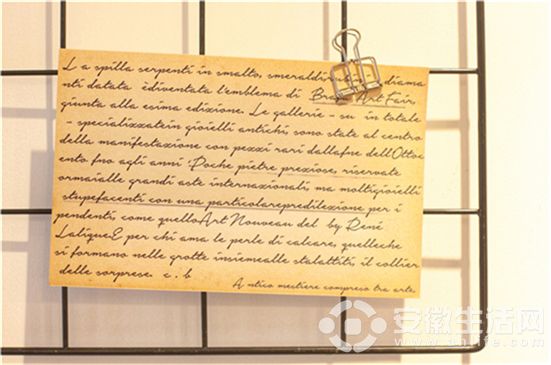 La spilla serpenti in smalto, smeraldi diama
nti datata idiventata l'emblema di Brafa Art Fair,
giunta alla esima edizione. Le gallerie - su in totale
- specializzatein gioielli antichi, sono state al centro
della manifestazione con pezzi rari dallafne dell'Ottoc
ento fno agli anni :Poche pietre preziose, riservate
ormaialle grandi aste internazionali, ma moltigioielli
stupefacenti con una particolarepredilezione per i
pendenti, come quelloArt Nouveau del by René
LaliqueE per chi ama le perle di calcare, quelleche
si formano nelle grotte insiemealle stalattiti, il collier
delle sorprese. c. b
Antico mestiere compreso tra arte,
安徽生活网
www.ahlife.com